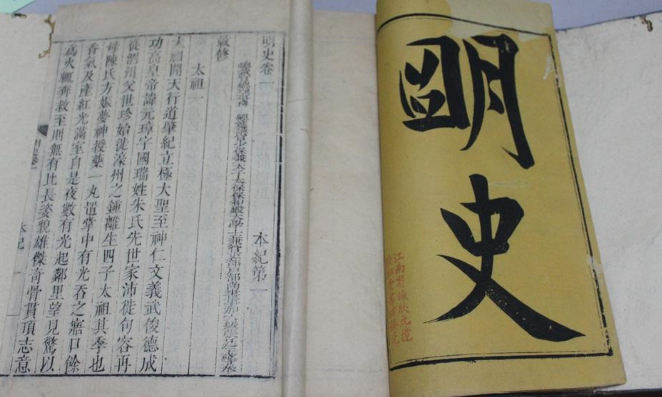 明史
明史卷一 本紀第一
敕修
太祖一
太祖開天行道肇紀立極大聖至神仁文義武俊德成
功高皇帝諱元璋字國瑞姓朱氏先世家沛徙句容再
徙泗州父世珍始徙濠州之鍾離生四子太祖其季也
母陳氏方娠夢神授藥一丸置掌中有光吞之寤口餘
香氣及產紅光滿室自是夜數有光起鄰里望見驚以
為火輒奔救至則無有比長姿貌雄傑奇骨貫頂志意